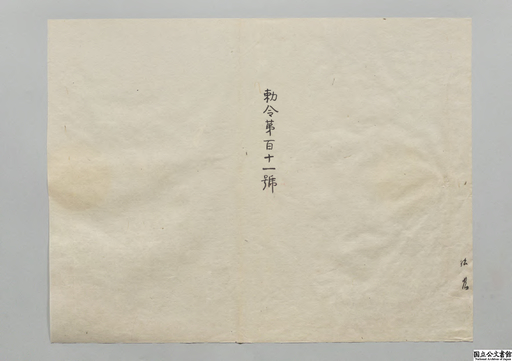 勅令第百十一號
国立公文書館
National Archives of Japan